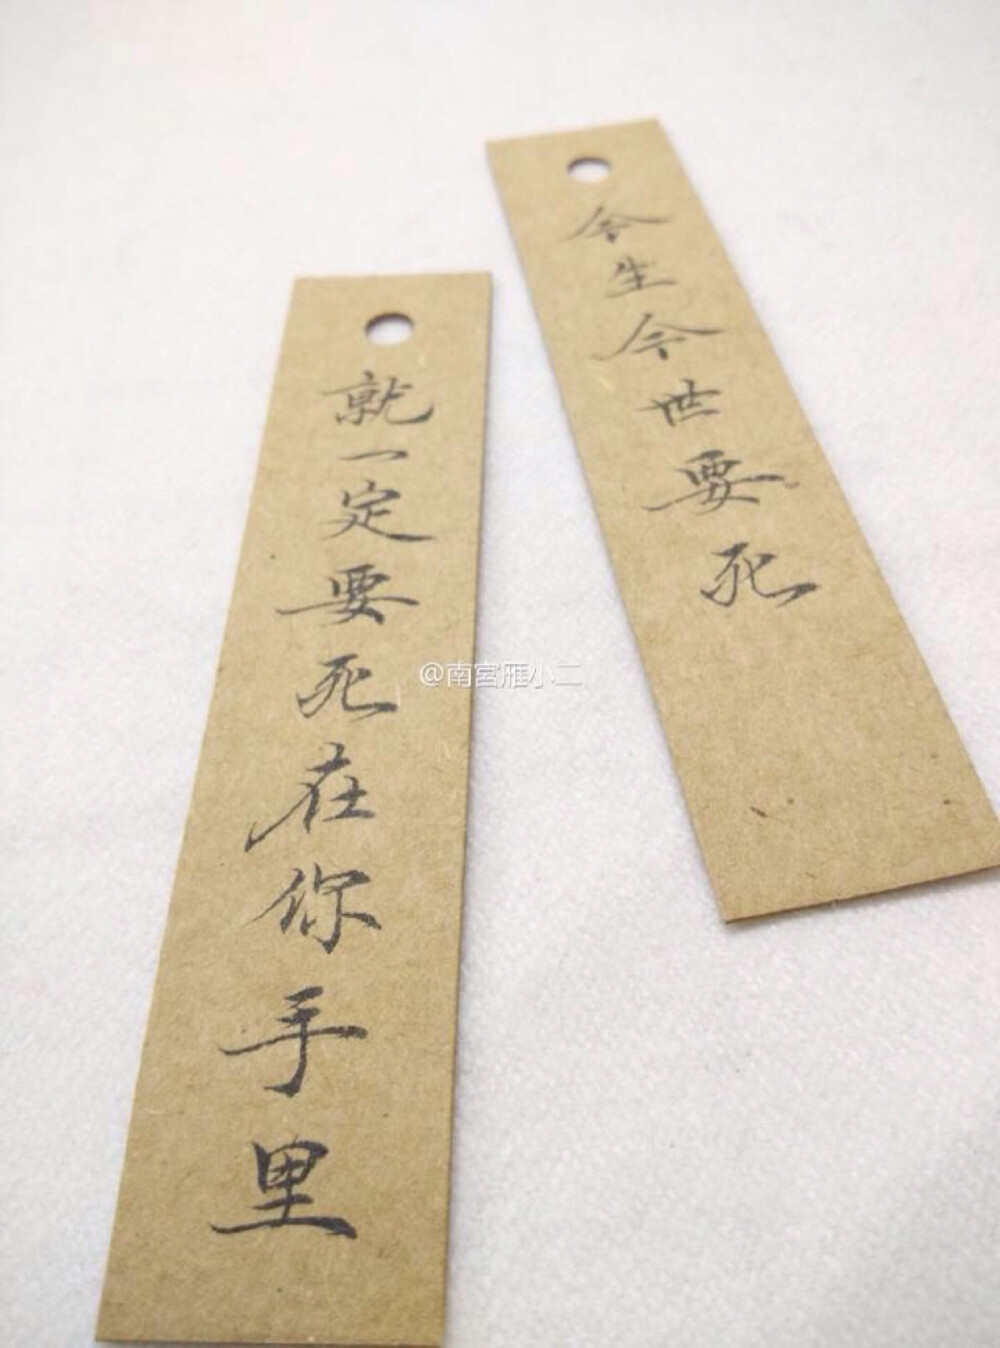 今生今世要死
就一定要死在你手里
@南宫雁小二